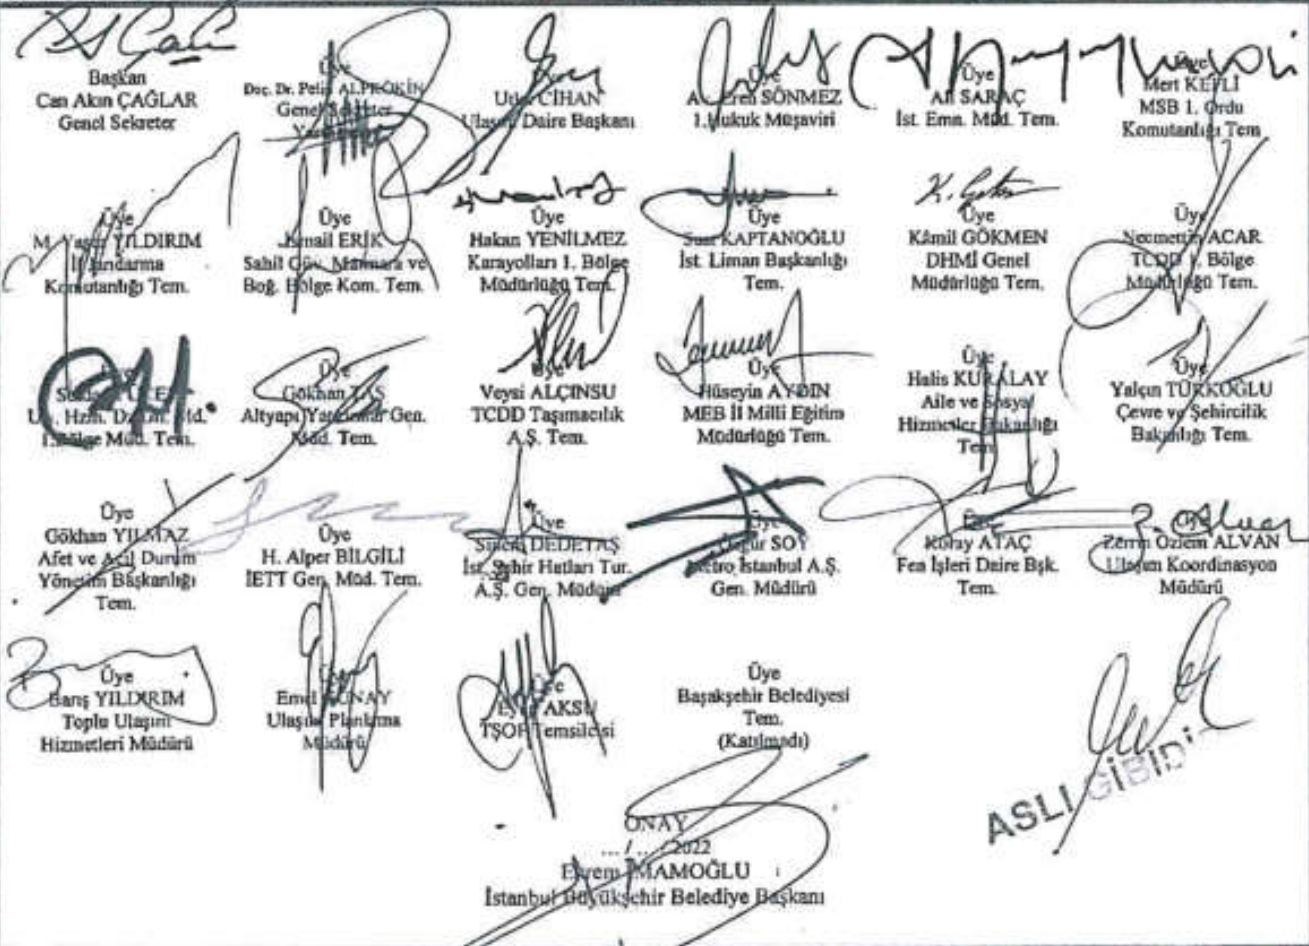 Başkan
Can Akın ÇAĞLAR
Genel Sekreter
Üye
Doç. Dr. Pelin ALPKÖKİN
Genel Sekreter
CİHAN
Ulaşım Daire Başkanı
Üye
Eren SÖNMEZ
1.Hukuk Müşaviri
Üye
Ali SARAÇ
İst. Emn. Müd. Tem.
Üye
Mert
MSB 1. Ordu
Komutanlığı Tem
Üye
M. Yaşar YILDIRIM
İl Jandarma
Komutanlığı Tem.
Üye
İsmail ERİK
Sahil Güv. Marmara ve
Boğ. Bölge Kom. Tem.
Üye
Hakan YENİLMEZ
Karayolları 1. Bölge
Müdürlüğü Tem.
Üye
KAPTANOĞLU
İst. Liman Başkanlığı
Tem.
Üye
Kâmil GÖKMEN
DHMİ Genel
Müdürlüğü Tem.
Üye
Necmettin ACAR
TCDD 1. Bölge
Müdürlüğü Tem.
1.Bölge Müd. Tem.
Üye
Gökhan TAŞ
Altyapı Yatırımlar Gen.
Müd. Tem.
Üye
Veysi ALÇINSU
TCDD Taşımacılık
A.Ş. Tem.
Üye
Hüseyin AYDIN
MEB İl Milli Eğitim
Müdürlüğü Tem.
Üye
Halis KURALAY
Aile ve Sosyal
Hizmetler Bakanlığı
Tem
Üye
Yalçın TÜRKOĞLU
Çevre ve Şehircilik
Bakanlığı Tem.
Üye
Gökhan YILMAZ
Afet ve Acil Durum
Yönetim Başkanlığı
Tem.
Üye
H. Alper BİLGİLİ
İETT Gen. Müd. Tem.
Üye
Sinem DEDETAŞ
İst. Şehir Hatları Tur.
A.Ş. Gen. Müdürü
Üye
Özgür SOY
Metro İstanbul A.Ş.
Gen. Müdürü
Üye
Koray ATAÇ
Fen İşleri Daire Bşk.
Tem.
Üye
Zerrin Özlem ALVAN
Ulaşım Koordinasyon
Müdürü
Üye
Barış YILDIRIM
Toplu Ulaşım
Hizmetleri Müdürü
Emel GÜNAY
Ulaşım Planlama
Müdürü
Üye
AKSU
TŞOF Temsilcisi
Üye
Başakşehir Belediyesi
Tem.
(Katılmadı)
ASLI GİBİDİR
ONAY
... / ... /2022
Ekrem İMAMOĞLU
İstanbul Büyükşehir Belediye Başkanı